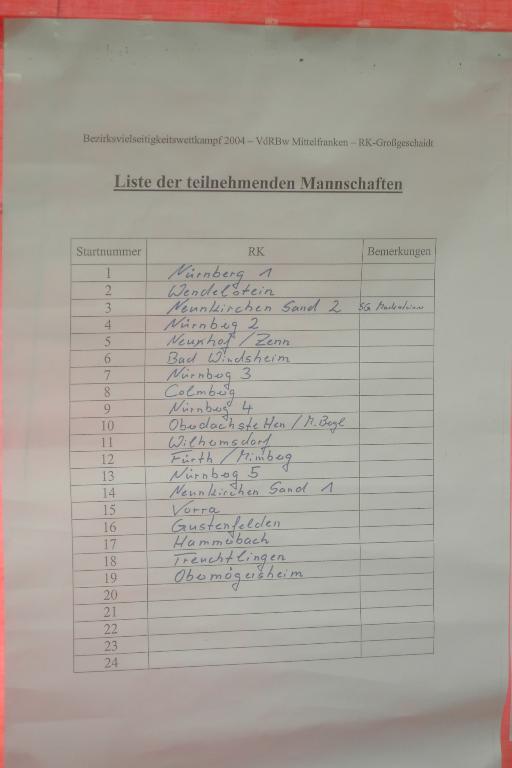 Bezirksvielseitigkeitswettkampf 2004 – VdRBw Mittelfranken – RK-Großgeschaidt
Liste der teilnehmenden Mannschaften
Startnummer RK Bemerkungen
1 Nürnberg 1
2 Wendelstein
3 Neunkirchen Sand 2 SG
4 Nürnberg 2
5 Neuhof / Zenn
6 Bad Windsheim
7 Nürnberg 3
8 Colmberg
9 Nürnberg 4
10 Oberdachstetten /
11 Wilhermsdorf
12 Fürth / Mimberg
13 Nürnberg 5
14 Neunkirchen Sand 1
15 Vorra
16 Gustenfelden
17 Hammerbach
18 Treuchtlingen
19 Obermögersheim
20
21
22
23
24